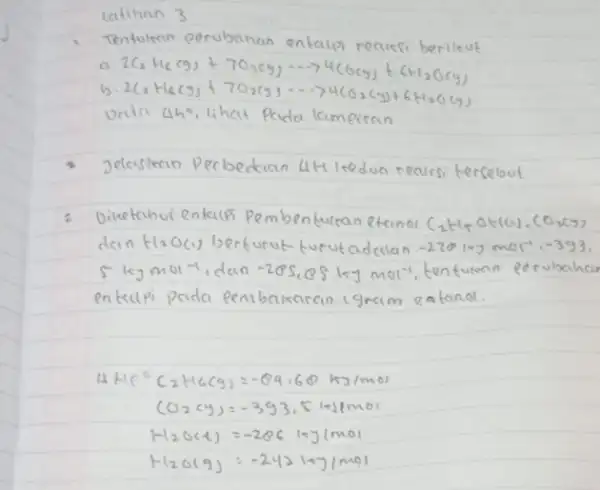 Latihan 3
Tentukan perubahan entalpi reaksi berikut
a 2C2H6(g) + 7O2(g) --→ 4CO(g) + 6H2O(g)
b. 2C2H6(g) + 7O2(g) --→ 4CO2(g) + 6H2O(g)
Data ΔH°, lihat Pada lampiran
Jelaskan Perbedaan ΔH kedua reaksi tersebut
Diketahui entalpi Pembentukan etanol C2H5OH(l), CO2(g)
dan H2O(l) berturut-turut adalah -278 kJ mol⁻¹, -393,
5 kJ mol⁻¹, dan -285, kJ mol⁻¹, tentukan perubahan
entalpi pada Pembakaran gram etanol.
ΔHf° C2H6(g) = -84,68 kJ/mol
CO2(g) = -393,5 kJ/mol
H2O(l) = -286 kJ/mol
H2O(g) = -242 kJ/mol